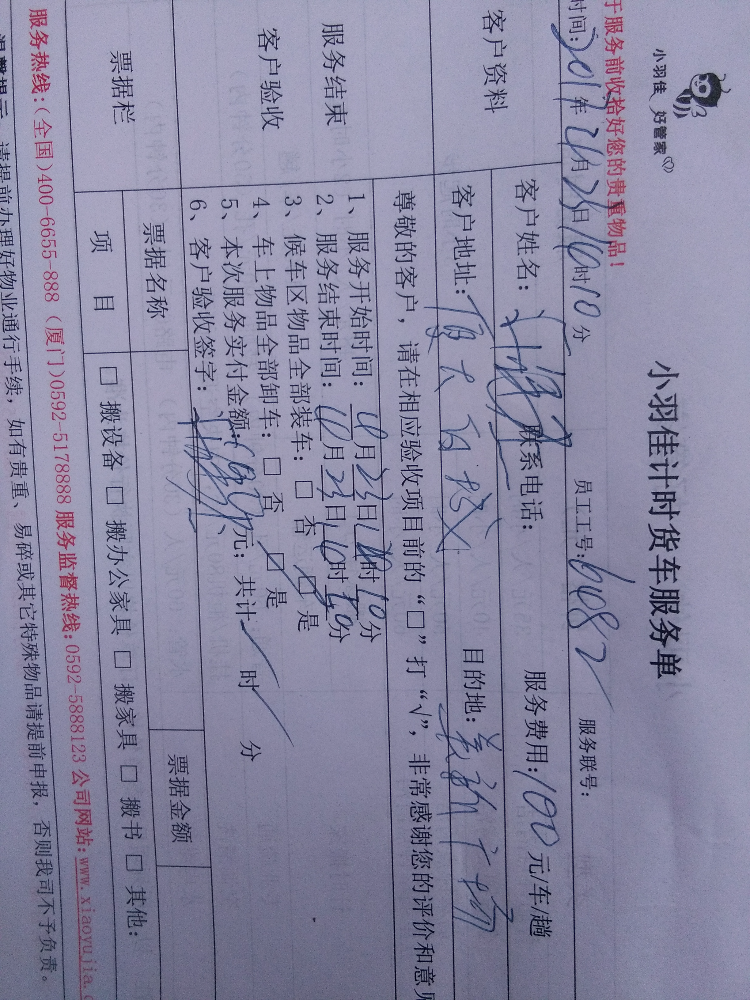 小羽佳 好管家
小羽佳计时货车服务单
于服务前收拾好您的贵重物品!
时间: 2017年4月23日16时10分 员工工号: 6082 服务联号:
客户资料
客户姓名: 联系电话: 服务费用: 100元/车/趟
客户地址: 厦大西 目的地: 广场
服务结束
客户验收
尊敬的客户,请在相应验收项目前的“□”打“√”,非常感谢您的评价和意见
1、服务开始时间: 4月23日16时10分
2、服务结束时间: 4月23日16时50分
3、候车区物品全部装车: □ 否 □ 是
4、车上物品全部卸车: □ 否 □ 是
5、本次服务实付金额: 元; 共计 时 分
6、客户验收签字:
票据栏
票据名称 票据金额
项目 □ 搬设备 □ 搬办公家具 □ 搬家具 □ 搬书 □ 其他:
服务热线:(全国)400-6655-888 (厦门)0592-5178888 服务监督热线:0592-5888123 公司网站:www.xiaoyujia.c
温馨提示:请提前办理好物业通行手续,如有贵重、易碎或其它特殊物品请提前申报,否则我司不予负责。